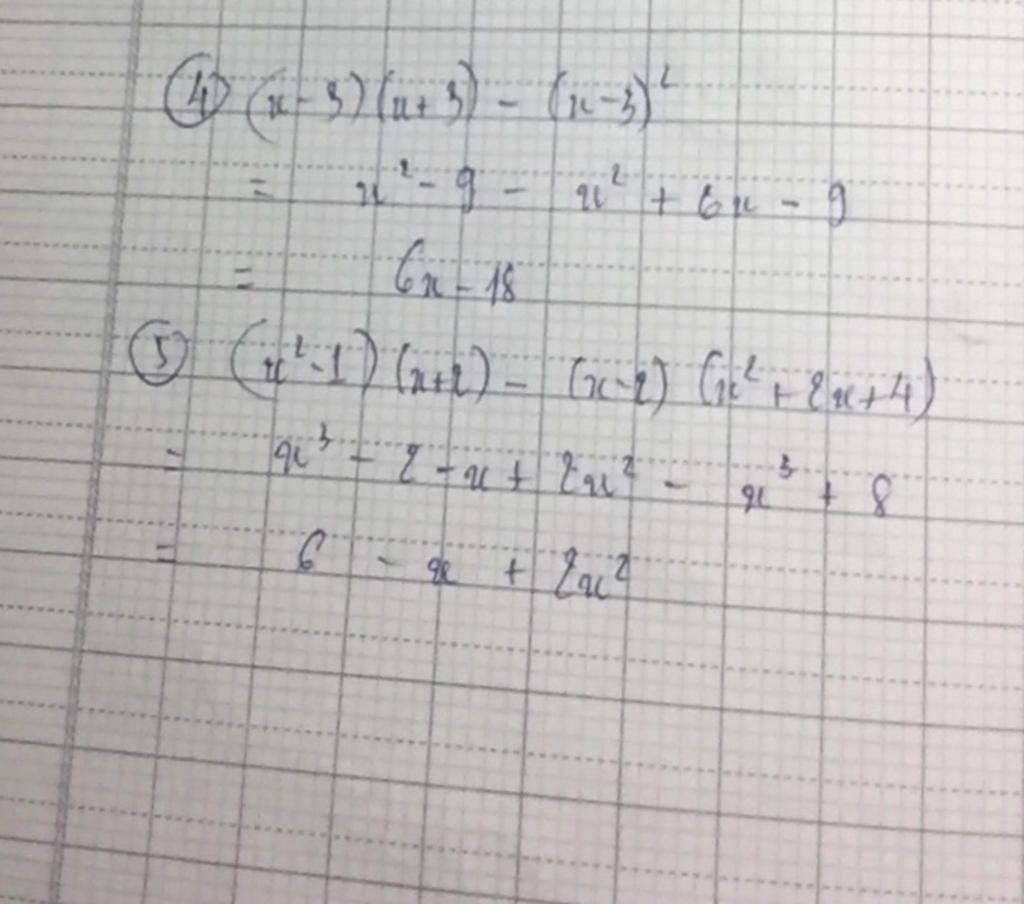 ④ (x-3)(x+3) - (x-3)²
= x² - 9 - x² + 6x - 9
= 6x - 18
⑤ (x²-1)(x+2) - (x-2)(x²+2x+4)
= x³ - 2 - x + 2x² - x³ + 8
= 6 - x + 2x²